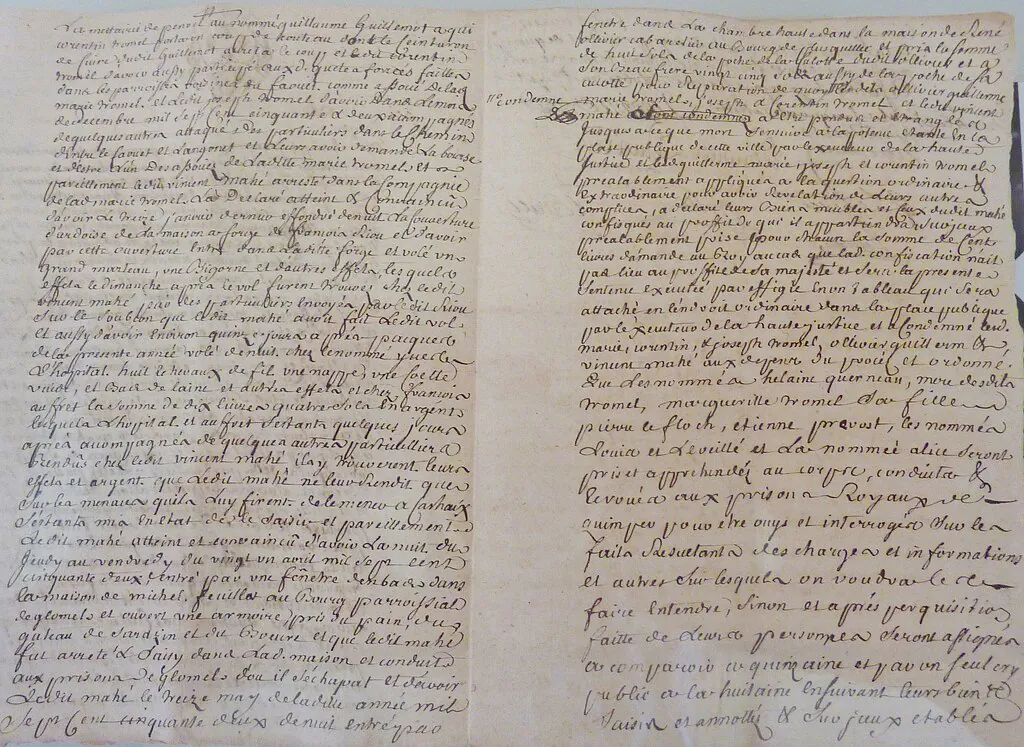 La mettairie de penoel au nommé guillaume Guillemot a qui
corentin tromel portaron coup de Couteau dont le Ceinturon
de Cuivre dudit Guillemot aureta le coup et ledit corentin
tromel davoir aussy participé aux dq quetes forcés faittes
dans les parroisses voisines du faouet, comme aussi Ladte
marie tromel, et Ledit joseph tromel d'avoir dans Le mois
de decembre mil sept cent cinquante & deux accompagnés
de quelques autres attaqué des particuliers dans le Chemin
d'entre le faouet et Langonet et Leurs avoir demandé La bourse
et d'estre L'un des associés de Laditte marie tromel, et
pareillement ledit vincent mahé arresté dans la Compagnie
de lad. marie tromel. La Declaré atteint & Convaincu
d'avoir Le treize janvier dernier effondré de nuit La couverture
d'ardoise de la maison a forge de françois Riou et d'avoir
par cette ouverture Entré dans laditte forge et volé un
grand marteau, une Bigorne et d'autres effets, les quels
effets le dimanche après le vol furent trouvés chez ledit
vincent mahé par des particuliers envoyés par ledit Riou
Sur le Soubson que ledit mahé avoit fait Ledit vol
et aussy d'avoir Environ quinze jours après pacques
de la presente année volé de nuit chez le nommé yves
L'hopital, huit Echevaux de fil, une nappe, une Coette
vuide, et Bas de laine et autres effets et chez françois
auffret la somme de dix livres quatre Sols En argent
lesquels L'hopital et auffret S'estants quelques jours
après accompagnés de quelques autres particulliers
Rendus chez ledit vincent mahé ils y trouverent leurs
effets et argent que Ledit mahé ne leur Rendit que
Sur la menace qu'ils Luy firent de le mener a Carhaix
S'estants mis En etat de le Saisir et pareillement
Ledit mahé atteint et convaincu d'avoir La nuit du
jeudy au vendredy du vingt un avril mil sept cent
cinquante deux Entré par une fenêtre d'enbas dans
la maison de michel feuillet au Bourg parroissial
de glomel et ouvert une armoire, pris du pain, du
gateau de Sarazin et du Beurre et que ledit mahé
fut arreté & Saisy dans Lad. maison et conduit
aux prisons de glomel d'ou il s'echapat et d'avoir
Ledit mahé le treize may de laditte année mil
Sept Cent cinquante deux de nuit entré par
fenetre dans La chambre haute dans la maison de René
ollivier cabaretier au Bourg de plusquellec et pris la somme
de huit Sols de la poche de la culotte dudit ollivier et a
Son Beau frere vingt cinq Sols aussy de la poche de sa
culotte pour Reparation de quoy ollivier guillerme
marie tromel, joseph & Corentin tromel et ledit vincent
Condenne
mahé Sont condemnés a estre pendus et Etranglés
jusques a ce que mort S'ensuive a la potence etante En la
place publique de cette ville par l'executeur de la haute
justice et lesd. guillerme, marie, joseph et corentin tromel
prealablement appliqués a la question ordinaire &
extraordinaire pour avoir Revelation de Leurs autres
complices, a declaré leurs Biens meubles et ceux dudit mahé
confisqués au proffit de qui il appartiendra Sur iceux
prealablement prise pour chacun la Somme de Cent
livres d'amande au Roy, au cas que lad. confiscation n'ait
pas lieu au proffit de Sa majesté et Sera la presente
Sentence executée par effigie En un Tableau qui Sera
attaché en L'endroit ordinaire dans la place publique
par l'executeur de la haute justice et a Condemné lesd.
marie, corentin, & joseph tromel, ollivier guillerm &
vincent mahé aux depens du procés et ordonné
Que Les nommés helaine querneau, mere desdits
tromel, marguerille tromel Sa fille
pierre le floch, etienne prevost, les nommés
Louis et Leveillé et La nommée alice Seront
pris et apprehendés au corps, conduits &
ecroués aux prisons Royaux de
quimper pour être ouys et interrogés Sur les
faits Resultants des charges et informations
et autres Sur lesquels on voudra le
faire Entendre, Sinon et aprés perquisition
faitte de Leurs personnes Seront assignés
a comparoir a quinzaine et par un seul cry
public a la huitaine ensuivant leurs biens
Saisis et annottés & Sur iceux etablis